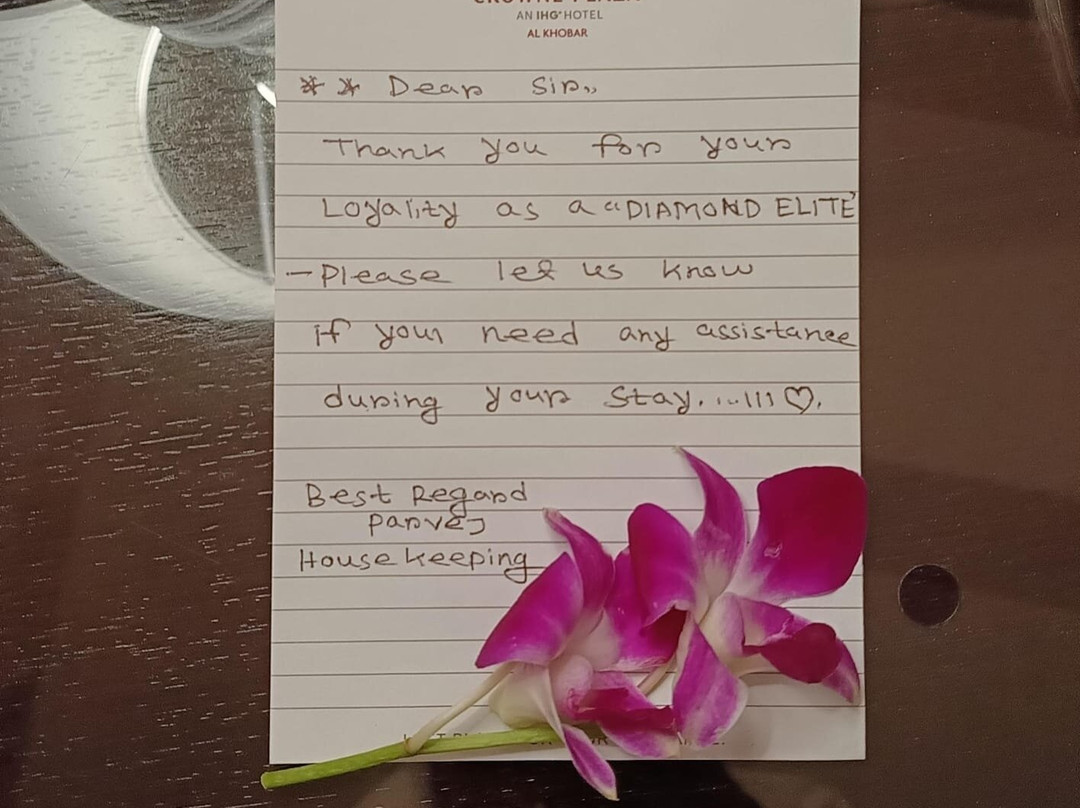 AN IHG® HOTEL
AL KHOBAR
** Dear Sir,,
Thank you for your
Loyality as a "DIAMOND ELITE"
- Please let us know
if your need any assistance
during your Stay. ...!!! ♡.
Best Regard
Parvej
House keeping